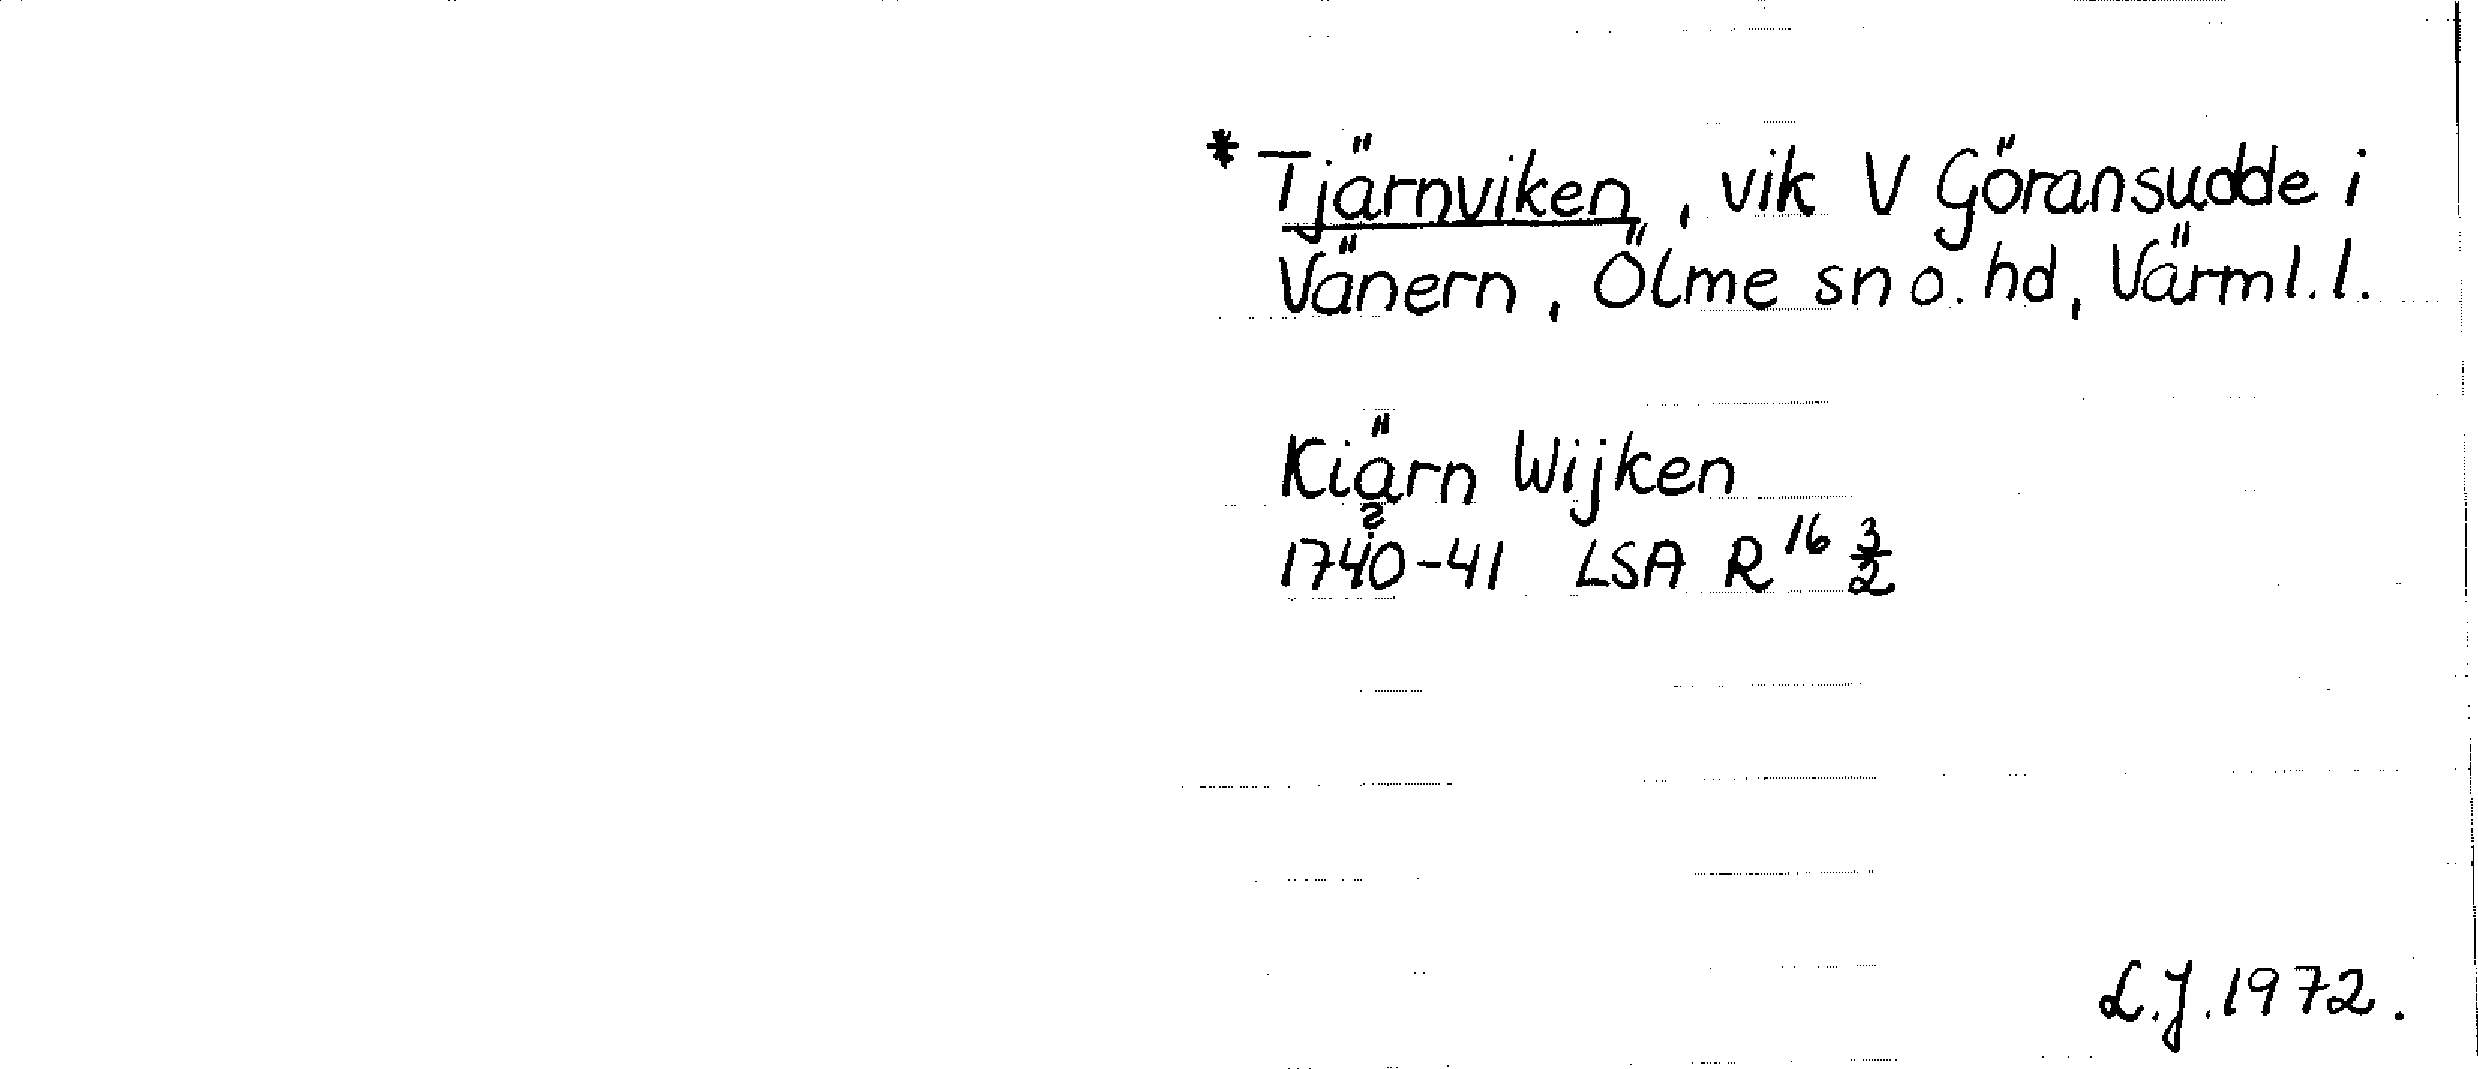 * Tjärnviken, vik V Göransudde i
Vänern, Ölme sn o. hd, Värml. l.
Kiärn Wijken
?
1740-41 LSA R 16 3/2
L.J. 1972.